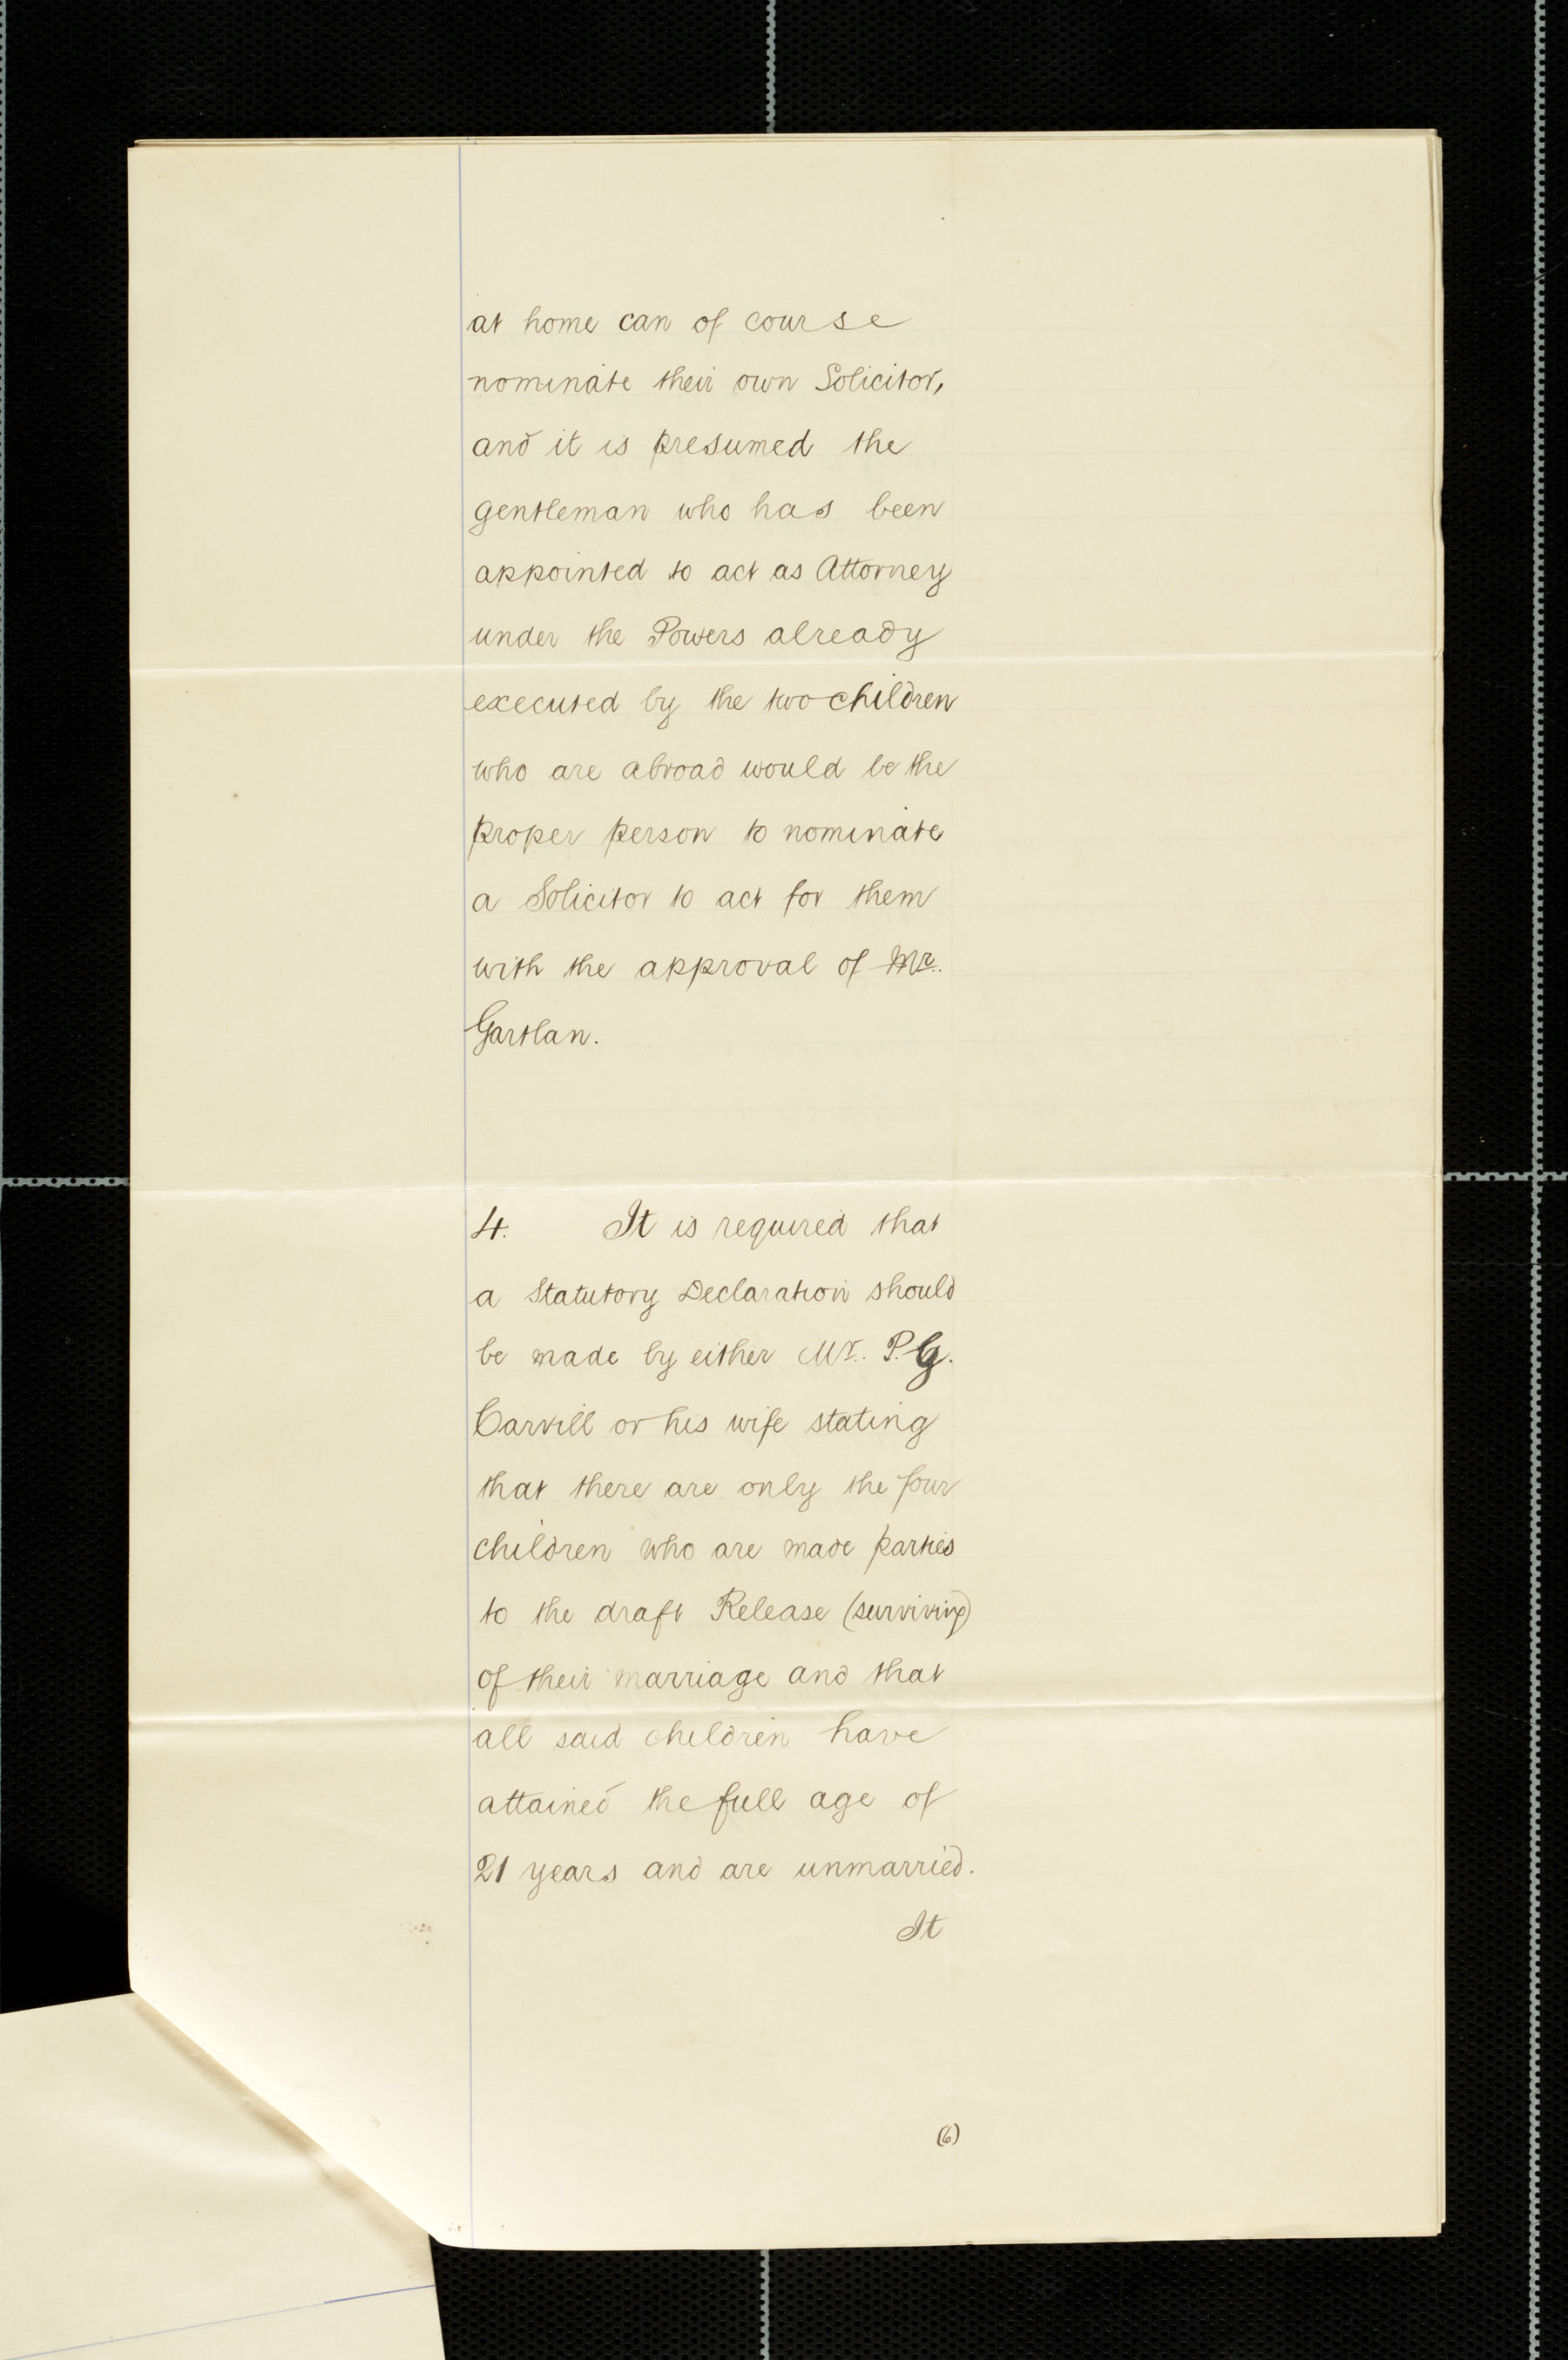 at home can of course
nominate their own Solicitor,
and it is presumed the
gentleman who has been
appointed to act as Attorney
under the Powers already
executed by the two children
who are abroad would be the
proper person to nominate
a Solicitor to act for them
with the approval of Mr.
Gartlan.
4. It is required that
a Statutory Declaration should
be made by either Mr. P. G.
Carvill or his wife stating
that there are only the four
children who are made parties
to the draft Release (surviving)
of their marriage and that
all said children have
attained the full age of
21 years and are unmarried.
It
(6)